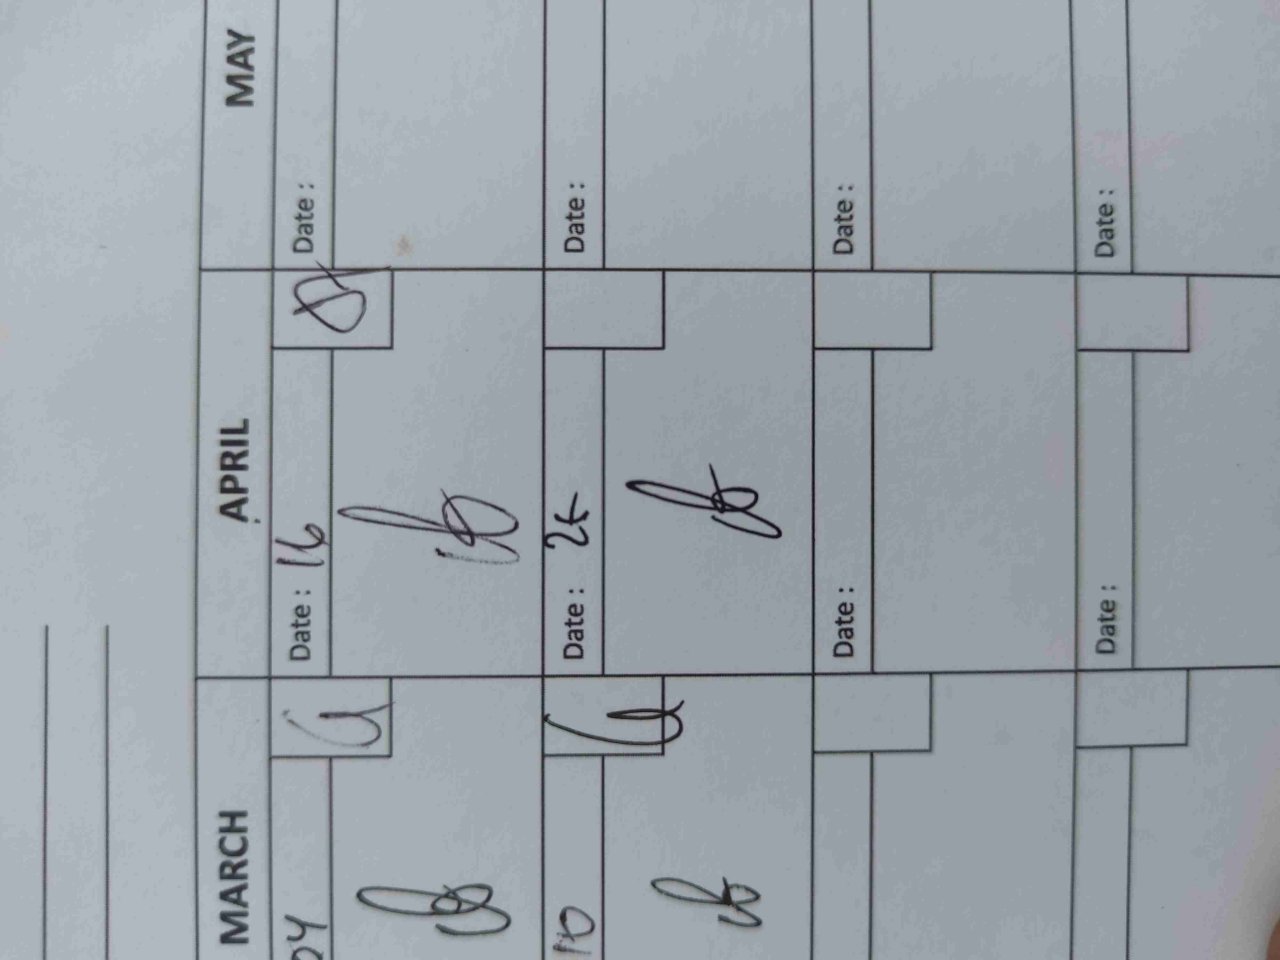 MARCH APRIL MAY
04 Date : 16 Date :
10 Date : 25 Date :
Date : Date :
Date : Date :